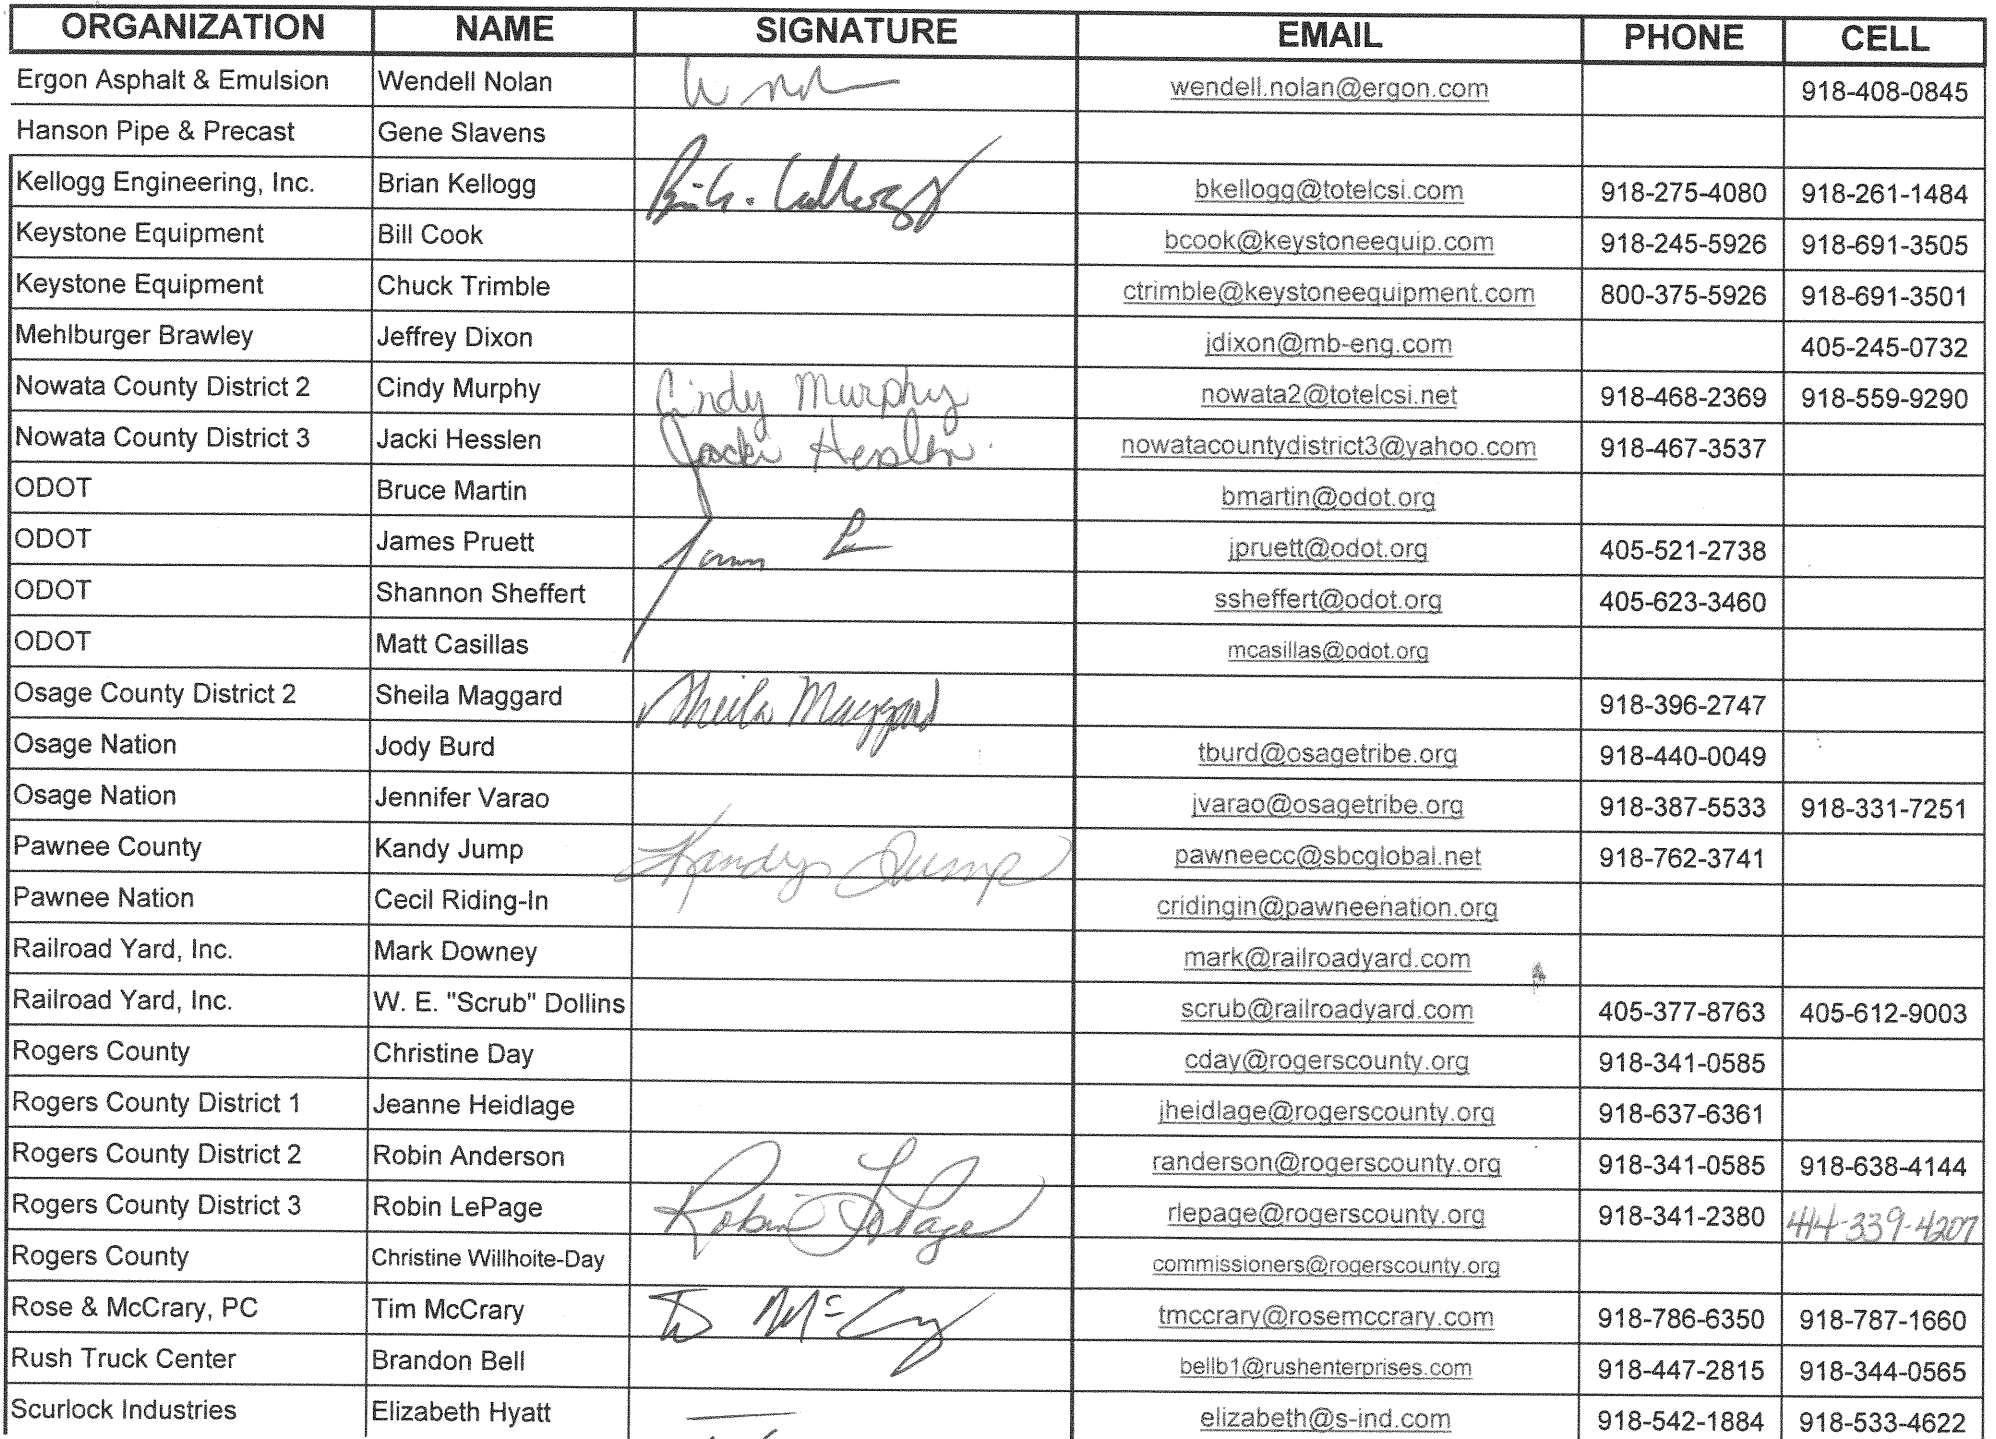 ORGANIZATION NAME SIGNATURE EMAIL PHONE CELL
Ergon Asphalt & Emulsion Wendell Nolan wendell.nolan@ergon.com 918-408-0845
Hanson Pipe & Precast Gene Slavens
Kellogg Engineering, Inc. Brian Kellogg bkellogg@totelcsi.com 918-275-4080 918-261-1484
Keystone Equipment Bill Cook bcook@keystoneequip.com 918-245-5926 918-691-3505
Keystone Equipment Chuck Trimble ctrimble@keystoneequipment.com 800-375-5926 918-691-3501
Mehlburger Brawley Jeffrey Dixon jdixon@mb-eng.com 405-245-0732
Nowata County District 2 Cindy Murphy Cindy Murphy nowata2@totelcsi.net 918-468-2369 918-559-9290
Nowata County District 3 Jacki Hesslen Jacki Hesslen nowatacountydistrict3@yahoo.com 918-467-3537
ODOT Bruce Martin bmartin@odot.org
ODOT James Pruett jpruett@odot.org 405-521-2738
ODOT Shannon Sheffert ssheffert@odot.org 405-623-3460
ODOT Matt Casillas mcasillas@odot.org
Osage County District 2 Sheila Maggard Sheila Maggard 918-396-2747
Osage Nation Jody Burd tburd@osagetribe.org 918-440-0049
Osage Nation Jennifer Varao jvarao@osagetribe.org 918-387-5533 918-331-7251
Pawnee County Kandy Jump Kandy Jump pawneecc@sbcglobal.net 918-762-3741
Pawnee Nation Cecil Riding-In cridingin@pawneenation.org
Railroad Yard, Inc. Mark Downey mark@railroadyard.com
Railroad Yard, Inc. W. E. "Scrub" Dollins scrub@railroadyard.com 405-377-8763 405-612-9003
Rogers County Christine Day cday@rogerscounty.org 918-341-0585
Rogers County District 1 Jeanne Heidlage jheidlage@rogerscounty.org 918-637-6361
Rogers County District 2 Robin Anderson randerson@rogerscounty.org 918-341-0585 918-638-4144
Rogers County District 3 Robin LePage Robin LePage rlepage@rogerscounty.org 918-341-2380 414-339-4207
Rogers County Christine Willhoite-Day commissioners@rogerscounty.org
Rose & McCrary, PC Tim McCrary tmccrary@rosemccrary.com 918-786-6350 918-787-1660
Rush Truck Center Brandon Bell bellb1@rushenterprises.com 918-447-2815 918-344-0565
Scurlock Industries Elizabeth Hyatt elizabeth@s-ind.com 918-542-1884 918-533-4622